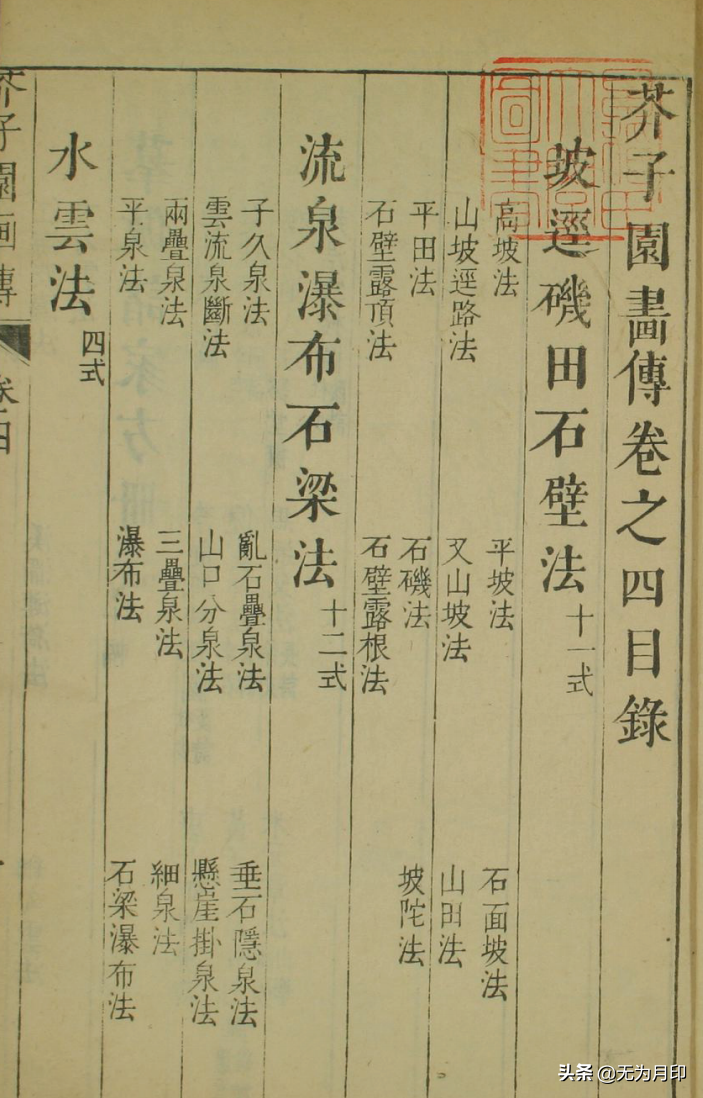 芥子園畫傳卷之四目錄
坡逕磯田石壁法 十一式
高坡法 平坡法 石面坡法
山坡逕路法 又山坡法 山田法
平田法 石磯法 坡陀法
石壁露頂法 石壁露根法
流泉瀑布石梁法 十二式
子久泉法 亂石疊泉法 垂石隱泉法
雲流泉斷法 山口分泉法 懸崖掛泉法
兩疊泉法 三疊泉法 細泉法
平泉法 瀑布法 石梁瀑布法
水雲法 四式
芥子園画傳 卷四
头条 @无为月印